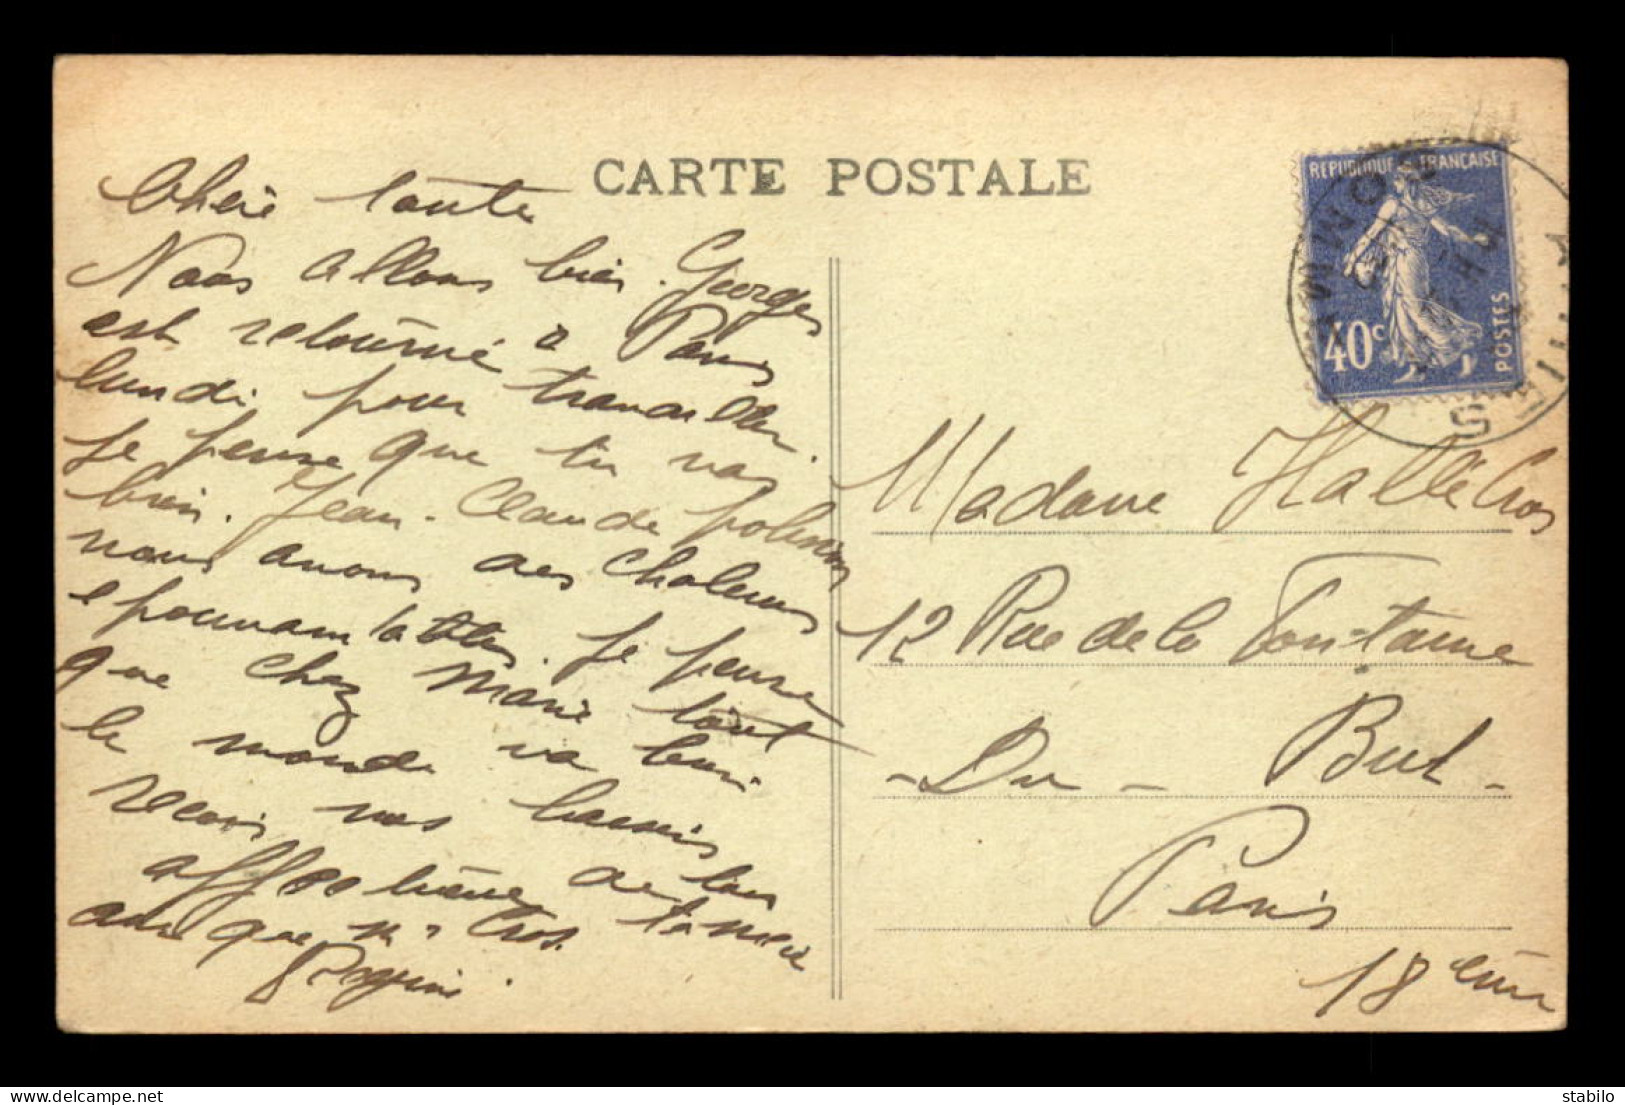 CARTE POSTALE
Chère tante
Nous allons bien. Georges
est retourné à Paris
lundi pour travailler.
Je pense que tu vas
bien. Jean-Claude polisson
nous avons des chaleurs
epouvantables. Je pense
que chez Marie tout
le monde va bien
recois nos baisers
affectueux de ton
ainsi que Mr Cros.
REPUBLIQUE FRANCAISE
40c
POSTES
Madame Hallé Cros
12 Rue de la Fontaine
- Du - But -
Paris
18 eme
delcampe.net
stabilo